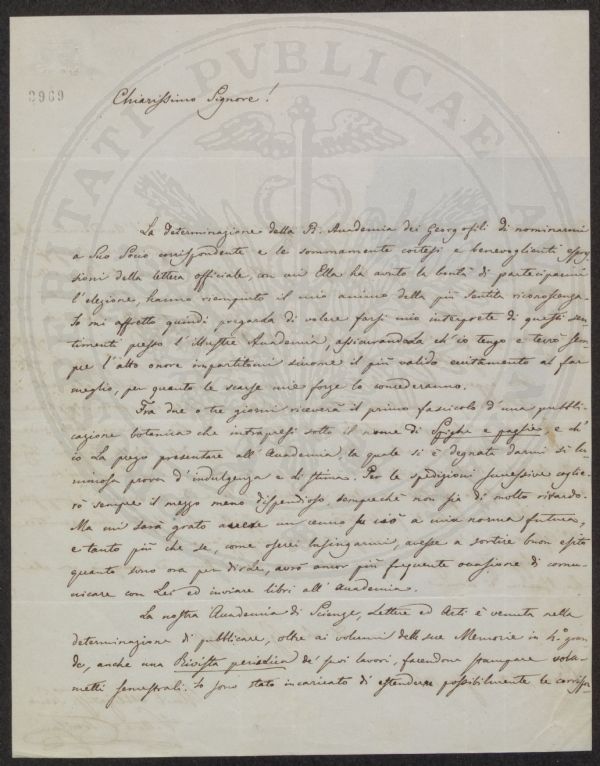 PROSPERITATI PVBLICAE A
3969
Chiarissimo Signore!
La determinazione della R. Accademia dei Georgofili di nominarmi
a Suo Socio corrispondente e le sommamente cortesi e benevoglienti espres
sioni della lettera officiale, con cui Ella ha avuto la bontà di parteciparmi
l'elezione, hanno riempiuto il mio animo della più sentita riconoscenza.
Io mi affretto quindi pregarla di volere farsi mio interprete di questi sen
timenti presso l'illustre Accademia, assicurandola ch'io tengo e terrò sem
pre l'alto onore impartitomi siccome il più valido eccitamento al far
meglio, per quanto le scarse mie forze lo concederanno.
Fra due o tre giorni riceverà il primo fascicolo d'una pubbli
cazione botanica che intrapresi sotto il nome di Spighe e paglie, e ch'
io La prego presentare all'Accademia, la quale si è degnata darmi sì lu
minosa prova d'indulgenza e di stima. Per le spedizioni successive coglie
rò sempre il mezzo meno dispendioso semprechè non sia di molto ritardo.
Ma mi sarà grato avere un cenno su ciò a mia norma futura,
e tanto più che se, come oserei lusingarmi, avesse a sortire buon esito
quanto sono ora per dirle, avrò ancor più frequente occasione di comu
nicare con Lei ed inviare libri all'Accademia.
La nostra Accademia di Scienze, Lettere ed Arti è venuta nella
determinazione di pubblicare, oltre ai volumi delle sue Memorie in 4.° gran
de, anche una Rivista periodica de' suoi lavori, facendone stampare volu
metti semestrali. Io sono stato incaricato di estendere possibilmente le corrispon